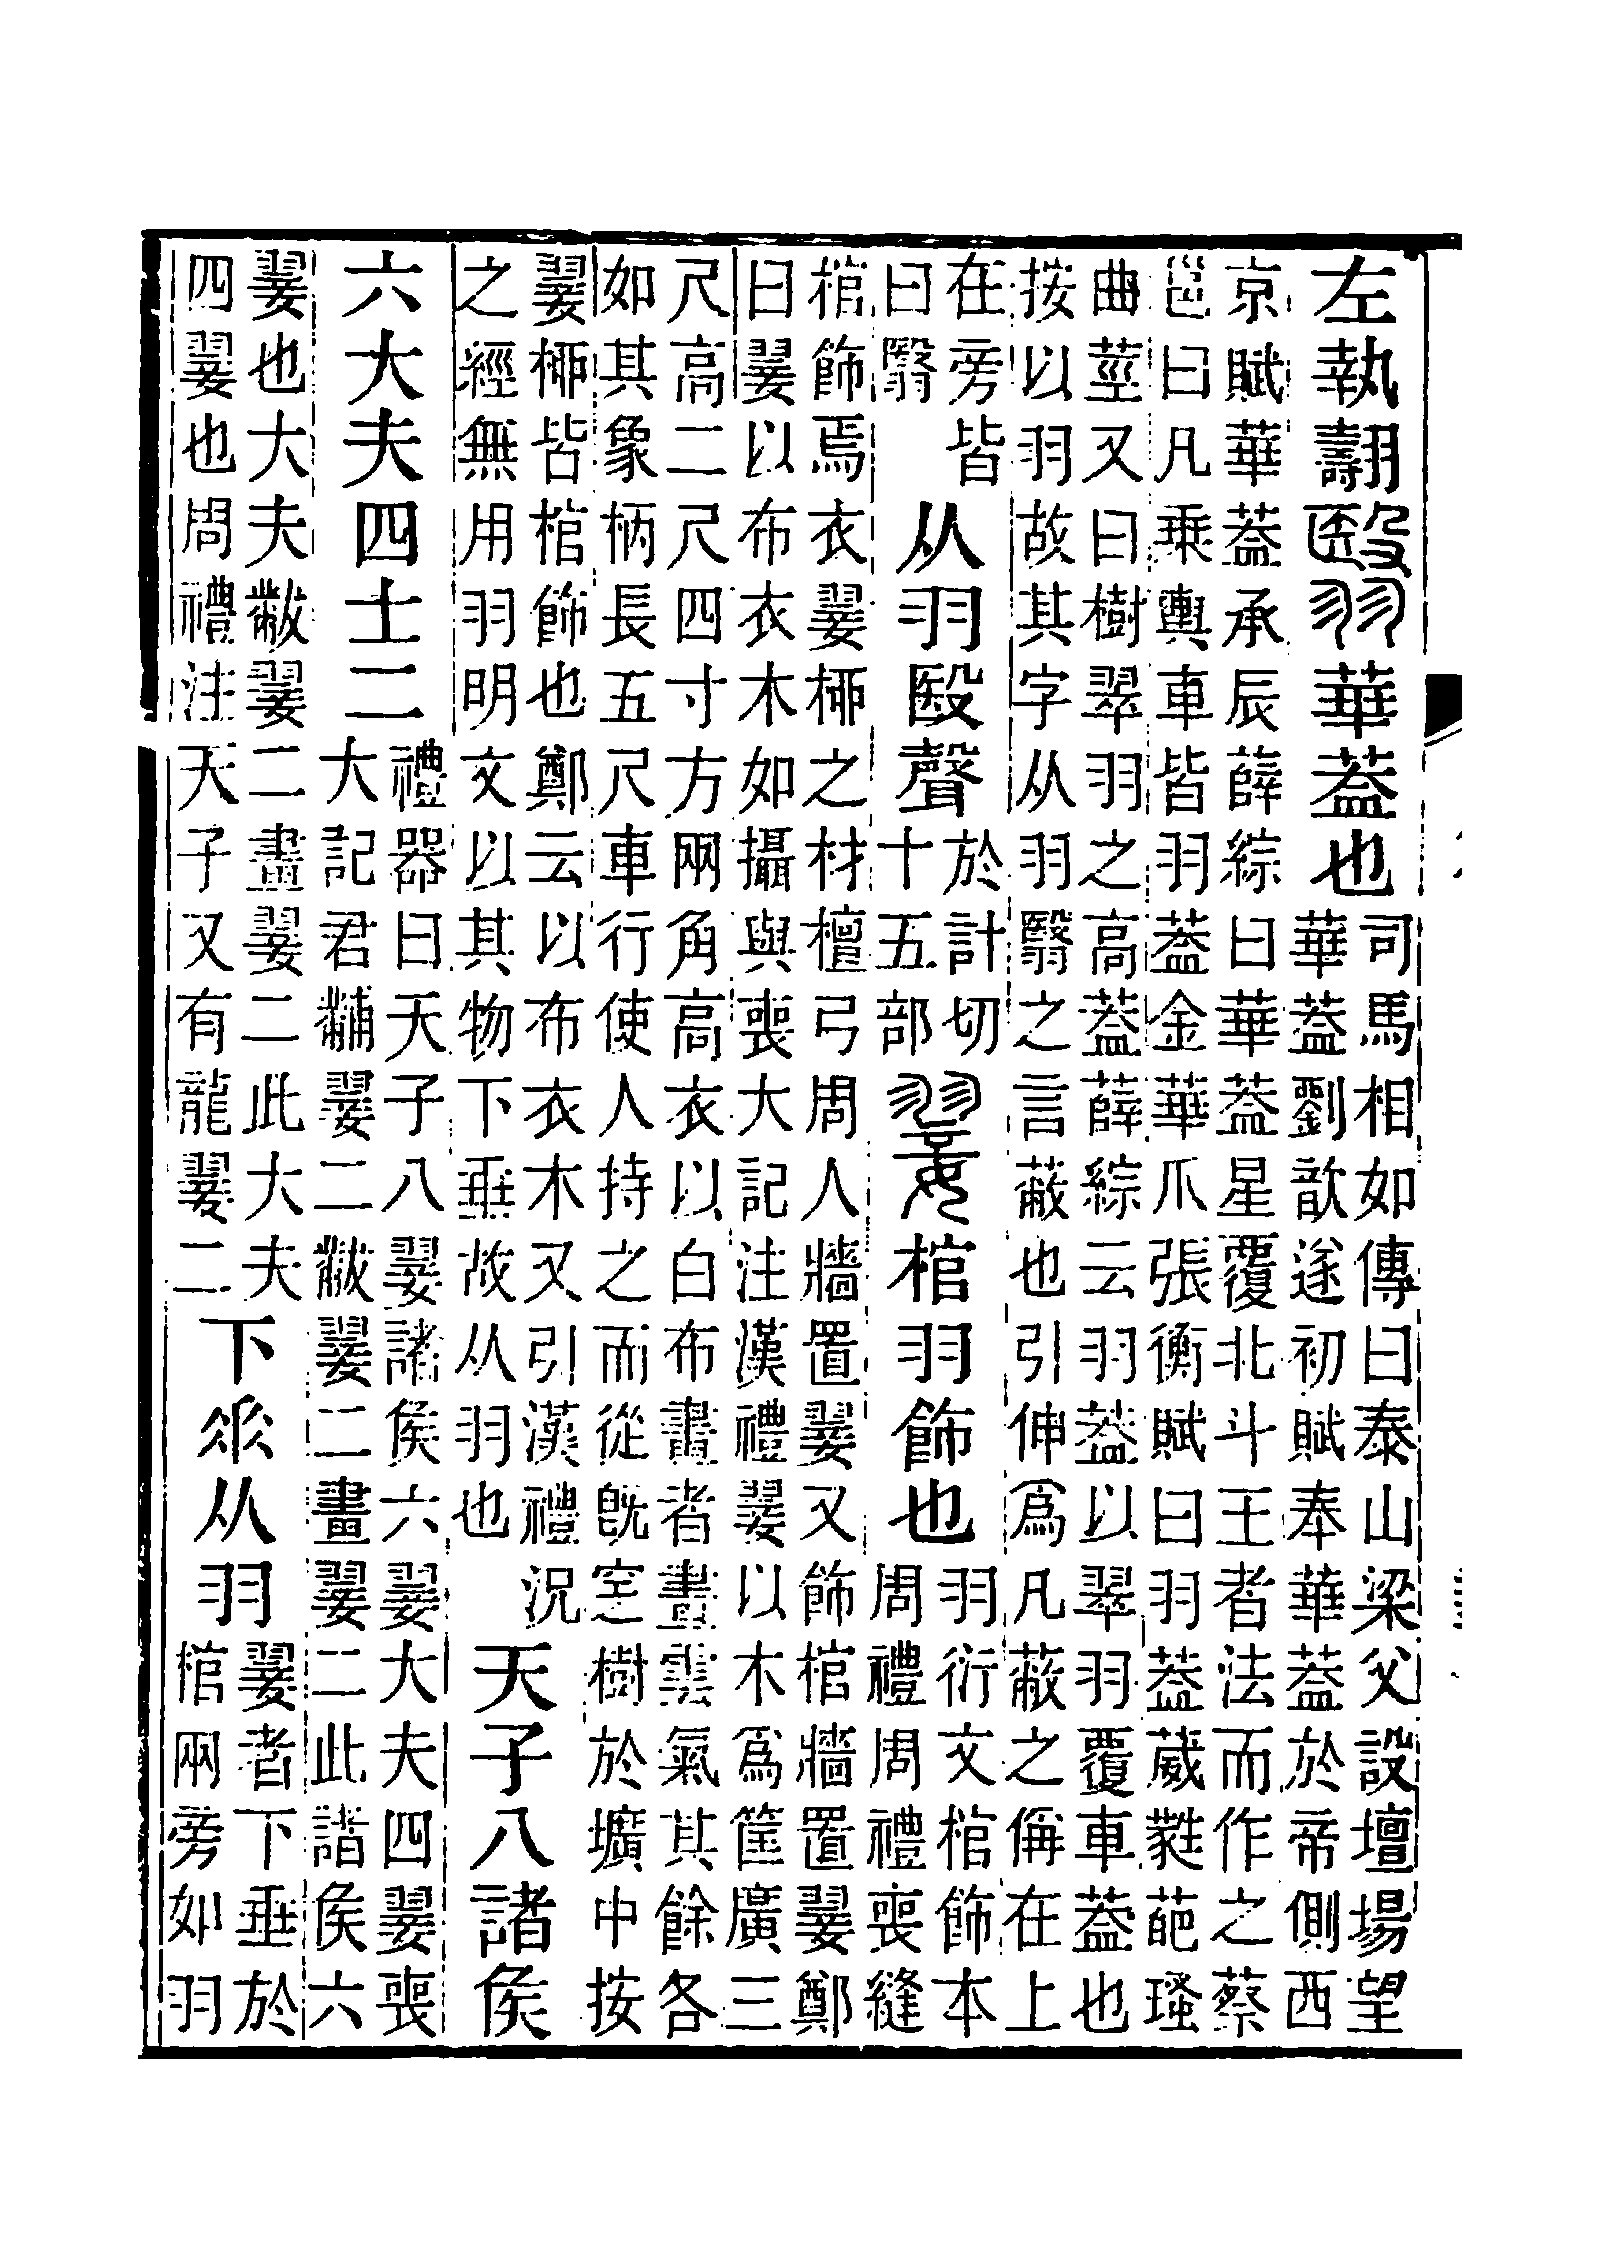 左執翿翳華葢也
司馬相如傳曰泰山梁父設壇場望
華葢劉歆遂初賦奉華葢於帝側西
京賦華葢承辰薛綜曰華葢星覆北斗王者法而作之蔡
邕曰凡乗輿車皆羽葢金華爪張衡賦曰羽葢葳蕤葩瑵
曲莖又曰樹翠羽之高葢薛綜云羽葢以翠羽覆車葢也
按以羽故其字从羽翳之言蔽也引伸爲凡蔽之偁在上
在旁皆
曰翳
从羽殹聲
於計切
十五部
翣棺羽飾也
羽衍文棺飾本
周禮周禮喪縫
棺飾焉衣翣桺之材檀弓周人牆置翣又飾棺牆置翣鄭
曰翣以布衣木如攝與喪大記注漢禮翣以木爲筐廣三
尺高二尺四寸方兩角高衣以白布畫者畫雲氣其餘各
如其象柄長五尺車行使人持之而從旣窆樹於壙中按
翣桺皆棺飾也鄭云以布衣木又引漢禮況
之經無用羽明文以其物下垂故从羽也
天子八諸矦
六大夫四士二
禮器曰天子八翣諸矦六翣大夫四翣喪
大記君黼翣二黻翣二畫翣二此諸矦六
翣也大夫黻翣二畫翣二此大夫
四翣也周禮注天子又有龍翣二
下𠂹从羽
翣者下垂於
棺兩旁如羽